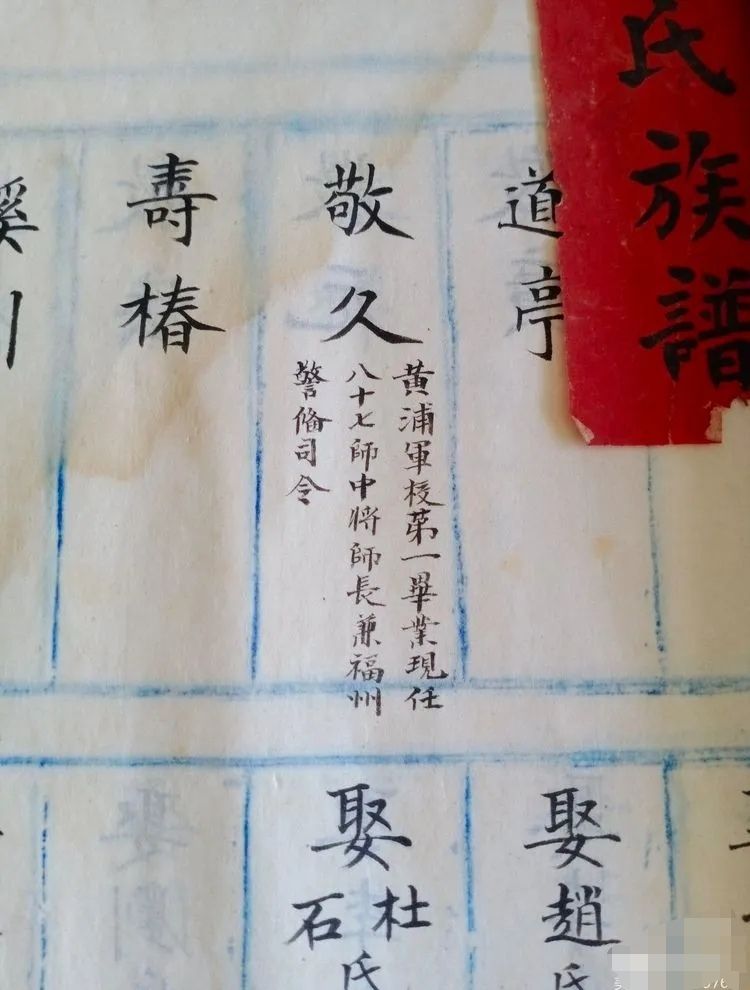 氏族譜
道亭
敬久
黃浦軍校第一畢業現任
八十七師中將師長兼福州
警俻司令
壽椿
娶趙氏
娶杜氏
石
娶劉